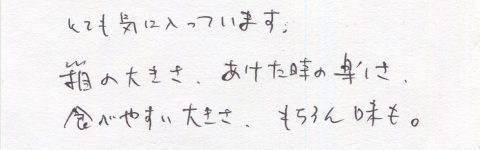 とても気に入っています。
箱の大きさ、あけた時の楽しさ、
食べやすい大きさ、もちろん味も。